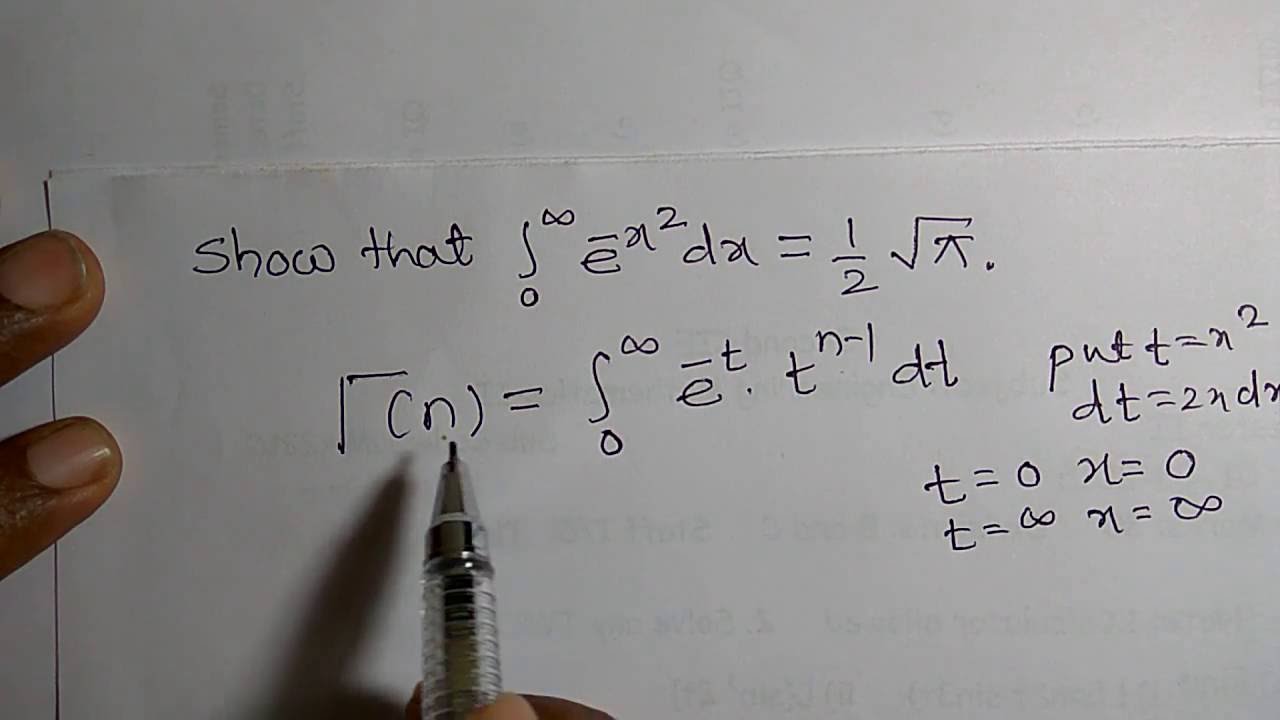 Show that ∫₀^∞ e^-x² dx = 1/2 √π.
Γ(n) = ∫₀^∞ e^-t . t^n-1 dt
put t = x²
dt = 2x dx
t = 0 x = 0
t = ∞ x = ∞